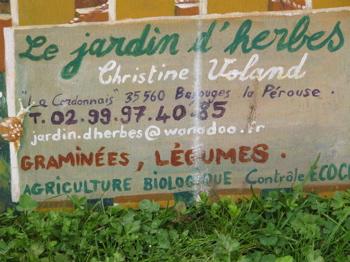 Le jardin d'herbes
Christine Voland
"La Cordonnais" 35560 Bazouges la Pérouse.
T. 02.99.97.40.85
jardin.dherbes@wanadoo.fr
GRAMINÉES, LÉGUMES.
AGRICULTURE BIOLOGIQUE Contrôle ECOC